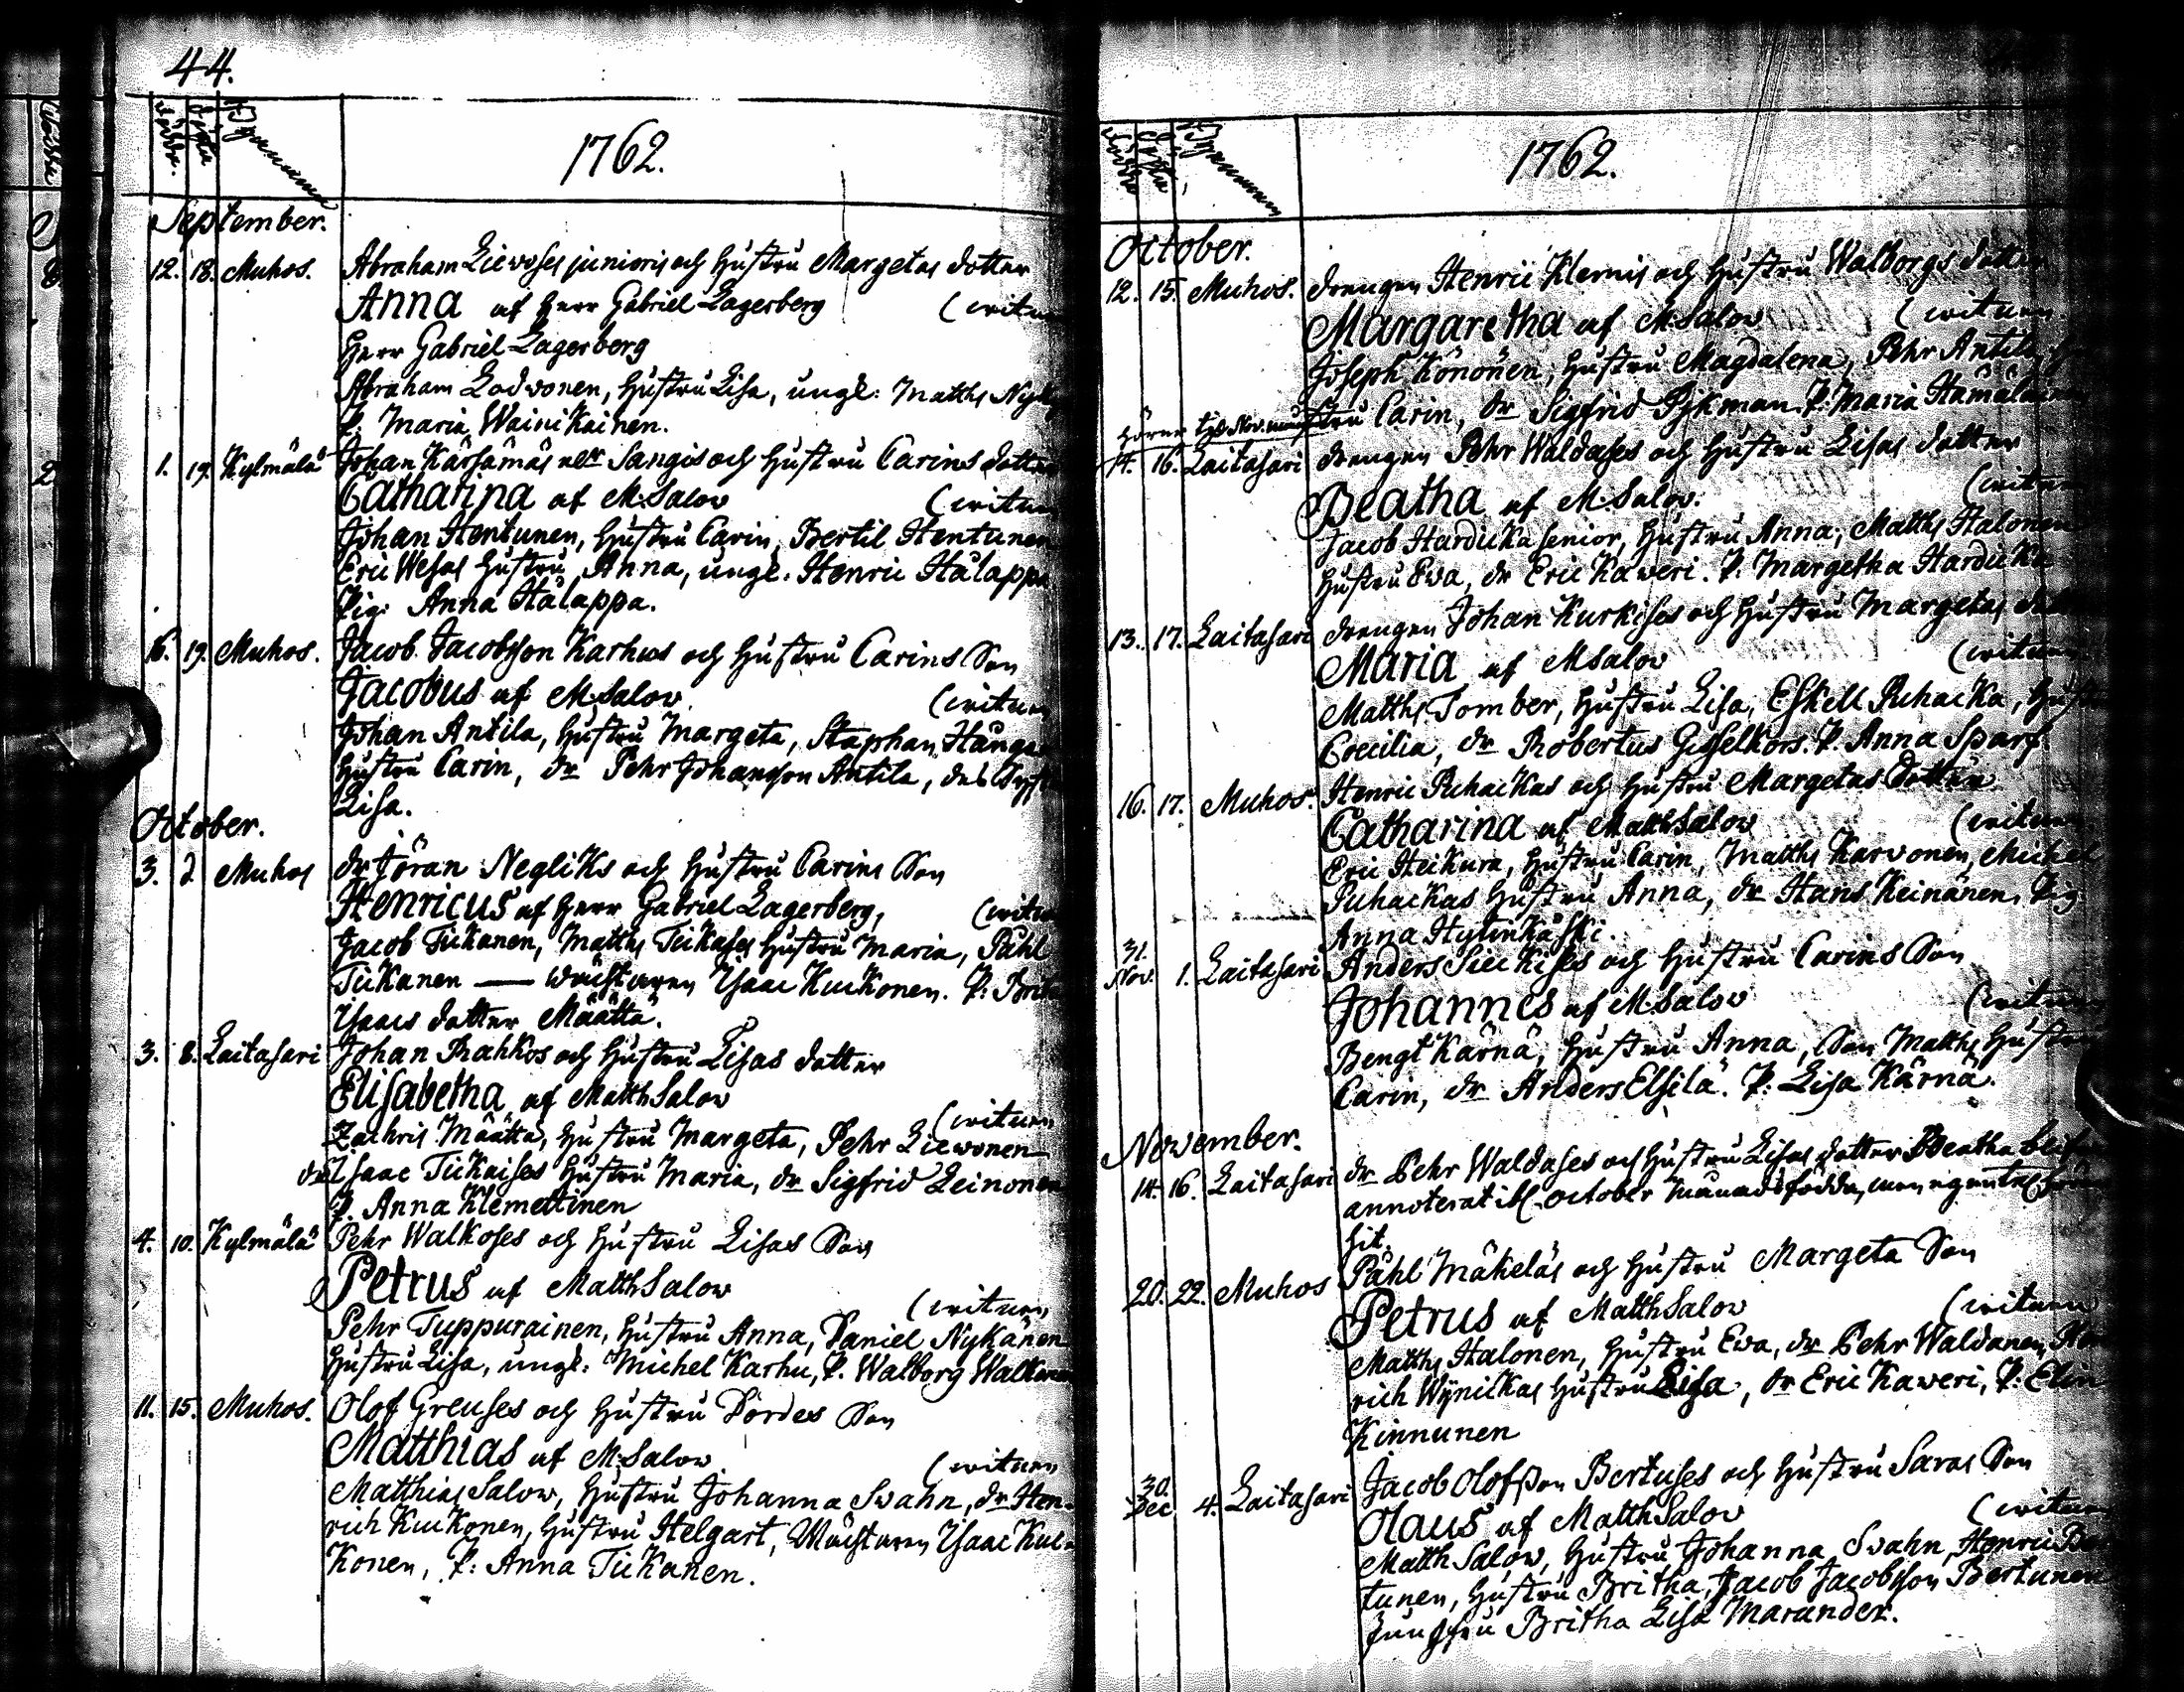 44.
Födde. Döpte Byanamn
1762.
September.
12. 18. Muhos. Abraham Liewoses junioris och hustru Margetas dotter
Anna af herr Gabriel Lagerberg (witnen
Herr Gabriel Lagerberg
Abraham Lodvonen, hustru Lisa, ungk: Matths
P. Maria Wainikainen.
1. 19. Kylmälä Johan Kärsämäs eller Sangis och hustru Carins dotter
Catharina af M. Salov (witnen
Johan Hentunen, hustru Carin, Bertil Hentunen
Eric Wesas hustru Anna, ungk. Henric Hälappa
Pig: Anna Hälappa.
16. 19. Muhos. Jacob Jacobsson Karhus och hustru Carins Son
Jacobus af M. Salov. (witnen
Johan Antila, hustru Margeta, Staphan
hustru Carin, dr Pehr Johansson Antila, des
Lisa.
October.
3. Muhos dr Jöran Negliks och hustru Carins Son
Henricus af herr Gabriel Lagerberg, (witnen
Jacob Tickanen, Matths Tickases hustru Maria, Påhl
Tickanen — wächtaren Isaac Kuckonen. P:
Isaacs dotter Määttä.
3. 8. Laitasari Johan Rahkos och hustru Lisas dotter
Elisabetha af Matth Salov
(witnen
Zachris Määttä, hustru Margeta, Pehr Liewonen
dr Isaac Tickaises hustru Maria, dr Sigfrid Leinonen
P. Anna Klemettinen
4. 10. Kylmälä Pehr Walkoses och hustru Lisas Son
Petrus af Matth Salov
(witnen
Pehr Tuppurainen, hustru Anna, Daniel Nykänen
hustru Lisa, ungk: Michel Karhu, P. Walborg
11. 15. Muhos. Olof Greuses och hustru Dordes Son
Matthias af M. Salov. (witnen
Matthias Salov, hustru Johanna Svahn, dr Hen-
rich Kuckonen, hustru Helgart, Wächtaren Isaac Kuc-
konen, P: Anna Tickanen.
Födde Döpte Byanamn
1762.
October.
12. 15. Muhos. drengen Henric Klemis och hustru Walborgs dotter
Margaretha af M. Salov (witnen
Joseph Könönen, hustru Magdalena, Pehr Antila,
hustru Carin, dr Sigfrid Pykman. P. Maria Hämäläinen
hörer til Nov. månad
14. 16. Laitasari drengen Pehr Waldases och hustru Lisas dotter
Beatha af M. Salov. (witnen
Jacob Harducka senior, hustru Anna, Matths Halonen
hustru Ewa, dr Eric Kaweri. P. Margetha Harducka
13. 17. Laitasari drengen Johan Kurkises och hustru Margetas dotter
Maria af M Salov (witnen
Matths Tomber, hustru Lisa, Eskell Puhacka, hustru
Coecilia, dr Robertus Gisselkors. P. Anna Sparf
16. 17. Muhos. Henric Puhackas och hustru Margetas dotter
Catharina af Matth Salov (witnen
Eric Heikura, hustru Carin, Matths Karvonen, Michel
Puhackas hustru Anna, dr Hans Keinänen, Pig
Anna Hylinkäski.
31. Nov. 1. Laitasari Anders Sieckises och hustru Carins Son
Johannes af M. Salov (witnen
Bengt Kärnä, hustru Anna, Son Matths hustru
Carin, dr Anders Elsilä. P: Lisa Kärnä.
November.
14. 16. Laitasari dr Pehr Waldases och hustru Lisas dotter Beatha
annoterat ibl. october månads födda, men egentel. hörer
hit.
20. 22. Muhos Påhl Mäkeläs och hustru Margeta Son
Petrus af Matth Salov (witnen
Matths Halonen, hustru Ewa, dr Pehr Waldanen, Hen
rich Wynickas hustru Lisa, dr Eric Kaweri, P: Elin
Kinnunen
30. Dec 4. Laitasari Jacob Olofsson Bertuses och hustru Saras Son
Olaus af Matth Salov (witnen
Matth Salov, hustru Johanna Svahn, Henric Ber
tunen, hustru Britha, Jacob Jacobsson Bertunen
Jungfru Britha Lisa Marander.